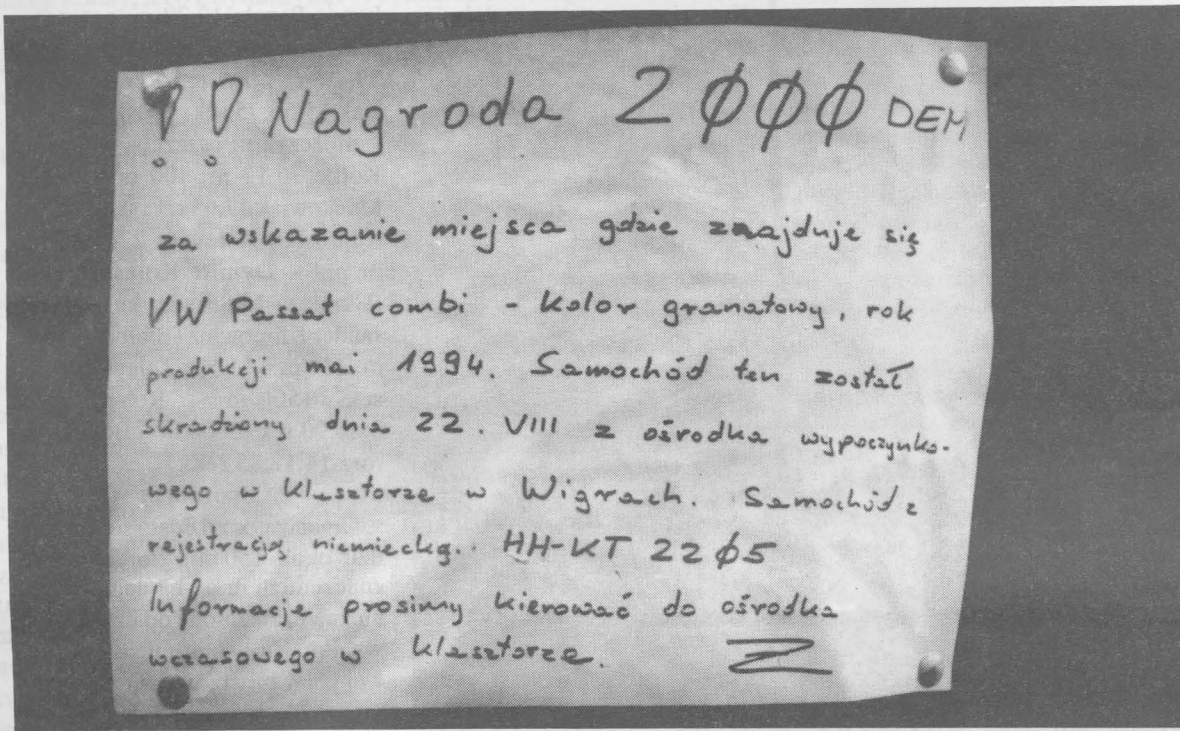 !! Nagroda 2000 DEM
za wskazanie miejsca gdzie znajduje się
VW Passat combi - kolor granatowy, rok
produkcji mai 1994. Samochód ten został
skradziony dnia 22. VIII z ośrodka wypoczynko-
wego w klasztorze w Wigrach. Samochód z
rejestracją niemiecką. HH-KT 2205
Informacje prosimy kierować do ośrodka
wczasowego w klasztorze.